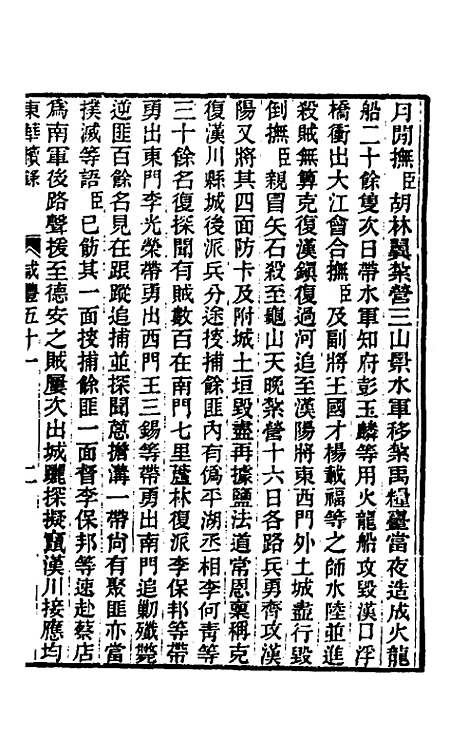 月間撫臣胡林翼紮營三山景水軍移紮禹糧臺當夜造成火龍
船二十餘隻次日帶水軍知府彭玉麟等用火龍船攻毀漢口浮
橋衝出大江會合撫臣及副將王國才楊載福等之師水陸並進
殺賊無算克復漢鎮復過河追至漢陽將東西門外土城盡行轟
倒撫臣親冒矢石殺至龜山天晚紮營十六日各路兵勇齊攻漢
陽又將其四面防卡及附城土垣毀盡再據鹽法道常恩稟稱克
復漢川縣城後派兵分途搜捕餘匪內有僞平湖丞相李何青等
三十餘名復探聞有賊數百在南門七里蘆林復派李保邦等帶
勇出東門李光榮帶勇出西門王三錫等帶勇出南門追勦殲斃
逆匪百餘名見在跟蹤追捕並探聞蔥擔溝一帶尚有聚匪亦當
撲滅等語臣已飭其一面搜捕餘匪一面督李保邦等速赴蔡店
爲南軍後路聲援至德安之賊屢次出城驪探擬竄漢川接應均
東華續錄
咸豐五十一
二